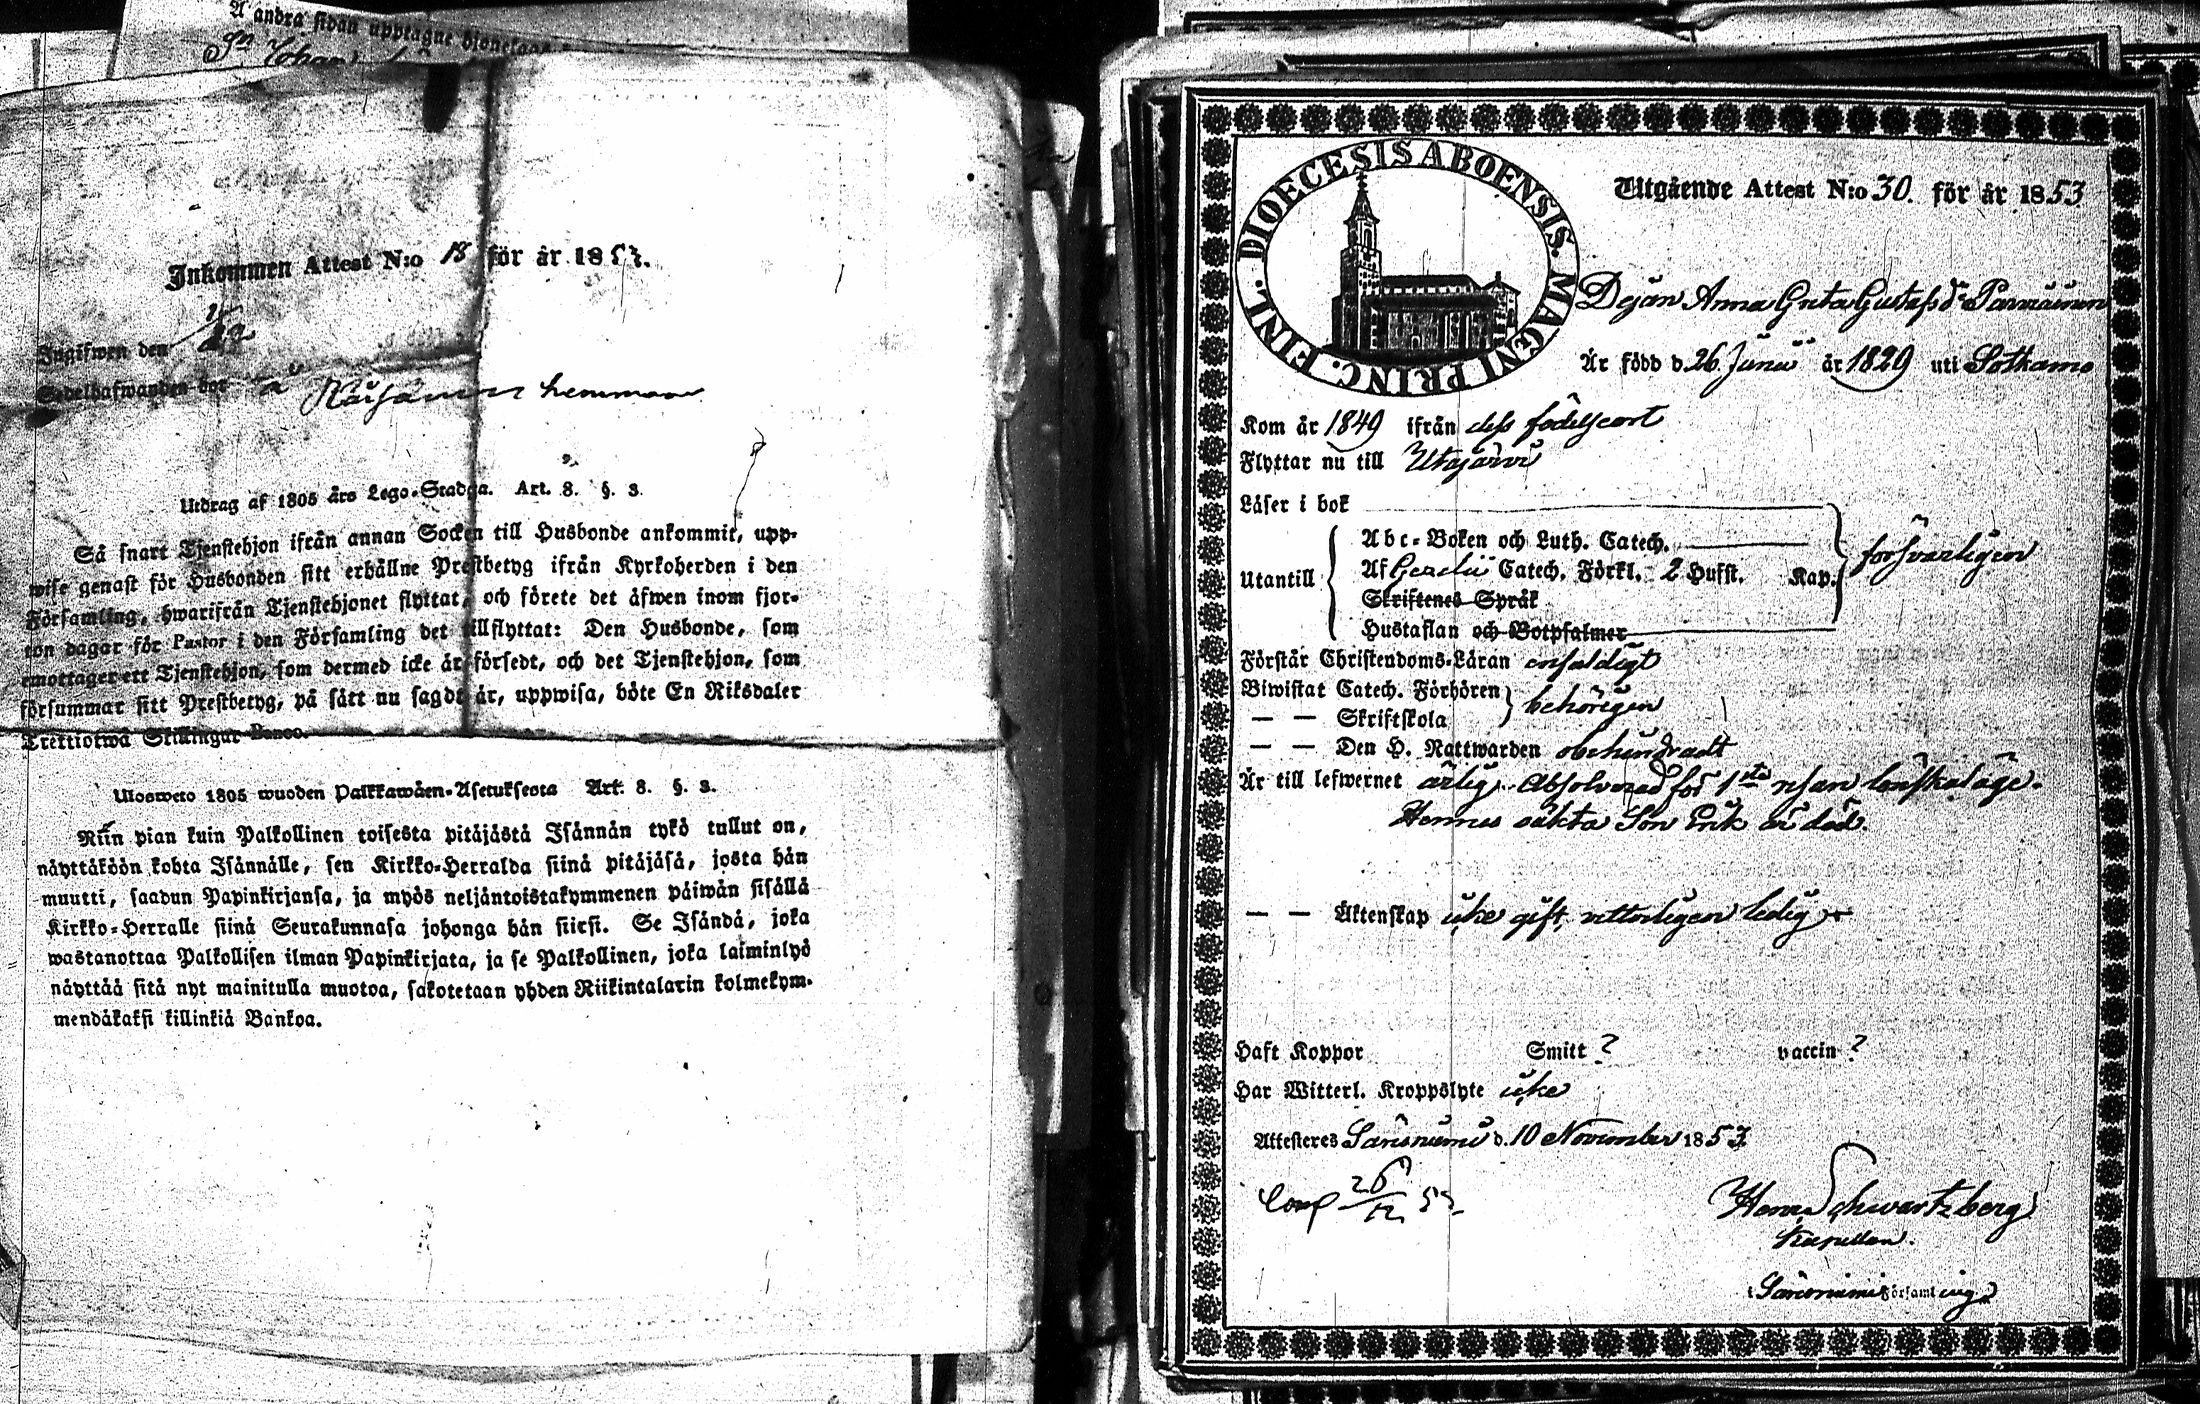 Å andra sidan upptagne
Sn Johan
Inkommen Attest N:o 18 för år 1853.
Ingifwen den
Sedelhafwanden bor å hemman
Utdrag af 1805 års Lego-Stadga. Art. 8. §. 3.
Så snart Tjenstehjon ifrån annan Socken till Husbonde ankommit, upp-
wise genast för Husbonden sitt erhållne Prestbetyg ifrån Kyrkoherden i den
Församling, hwarifrån Tjenstehjonet flyttat, och förete det äfwen inom fjor-
ton dagar för Pastor i den Församling det tillflyttat: Den Husbonde, som
emottager ett Tjenstehjon, som dermed icke är försedt, och det Tjenstehjon, som
försummar sitt Prestbetyg, på sätt nu sagdt är, uppwisa, böte En Riksdaler
Trettiotwå Skillingar Banco.
Ulosweto 1805 wuoden Palkkawäen-Asetuksesta Art. 8. §. 3.
Niin pian kuin Palkollinen toisesta pitäjästä Isännän tykö tullut on,
näyttäköön kohta Isännälle, sen Kirkko-Herralda siinä pitäjäsä, josta hän
muutti, saadun Papinkirjansa, ja myös neljäntoistakymmenen päiwän sisällä
Kirkko-Herralle siinä Seurakunnasa johonga hän siirsi. Se Isändä, joka
wastanottaa Palkollisen ilman Papinkirjata, ja se Palkollinen, joka laiminlyö
näyttää sitä nyt mainitulla muotoa, sakotetaan yhden Riikintalarin kolmekym-
mendäkaksi killinkiä Bankoa.
DIOECESIS ABOENSIS. MAGNI PRINC. FINL.
Utgående Attest N:o 30. för år 1853
Dejan Anna Greta Gustafsdr Parviainen
Är född d. 26 Junii år 1829 uti Sotkamo
Kom år 1849 ifrån dess födelseort
Flyttar nu till Utajärvi
Läser i bok
Utantill
Abc-Boken och Luth. Catech.
Af Catech. Förkl. 2 Hufst. Kap.
försvarligen
Skriftenes Språk
Hustaflan och Botpsalmer
Förstår Christendoms-Läran enfaldigt
Biwistat Catech. Förhören
— — Skriftskola
behörigen
— — Den H. Nattwarden obehindradt
Är till lefwernet ärlig. Absolverad för 1sta resan lönskaläge.
Hennes oäkta Son Erik är död.
— — Äktenskap icke gift, vetterligen ledig
Haft Koppor Smitt ? vaccin ?
Har Witterl. Kroppslyte icke
Attesteres Säräisniemi d. 10 November 1853.
Henr Schwartzberg
Kapellan.
i Säräisniemi Församling